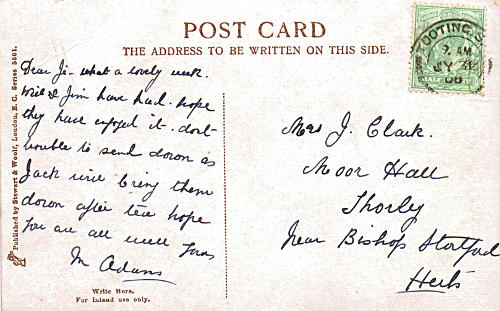 POST CARD
THE ADDRESS TO BE WRITTEN ON THIS SIDE.
TOOTING S
9. AM
JY 31
08
HALF
Published by Stewart & Woolf, London, E. C. Series 5401.
Dear J - what a lovely week
Will & Jim have had - hope
they have enjoyed it - don't
trouble to send down as
Jack will bring them
down after tea hope
you are all well Yours
M Adams
Write Here.
For Inland use only.
Mrs J. Clark.
Moor Hall
Thorley
Near Bishops Stortford
Herts